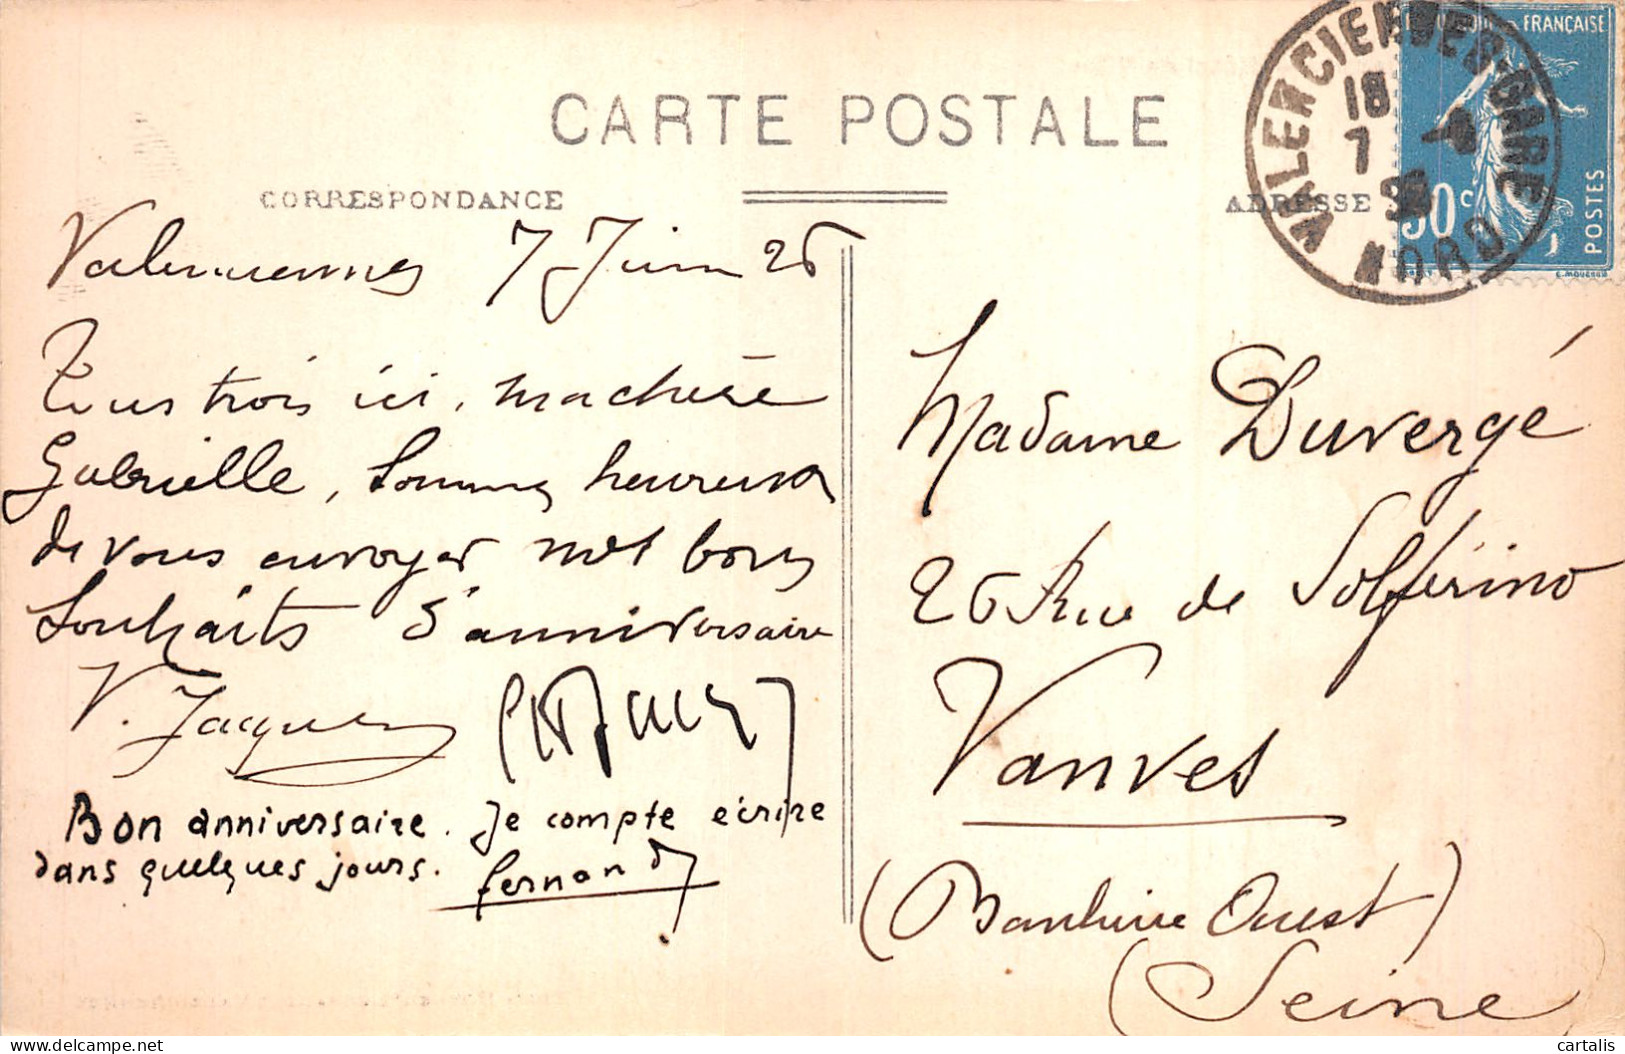 CARTE POSTALE
CORRESPONDANCE
ADRESSE
VALENCIENNES-GARE
18
7
NORD
FRANÇAISE
50c
POSTES
E. MOUCHON
Valenciennes 7 Juin 26
Tous trois ici, ma chère
Gabrielle, sommes heureux
de vous envoyer nos bons
souhaits d'anniversaire
V. Jacques
Bon anniversaire. Je compte écrire
dans quelques jours.
Fernand
Madame Duvergé
26 Rue de Solférino
Vanves
(Banlieue Ouest)
(Seine
cartalis